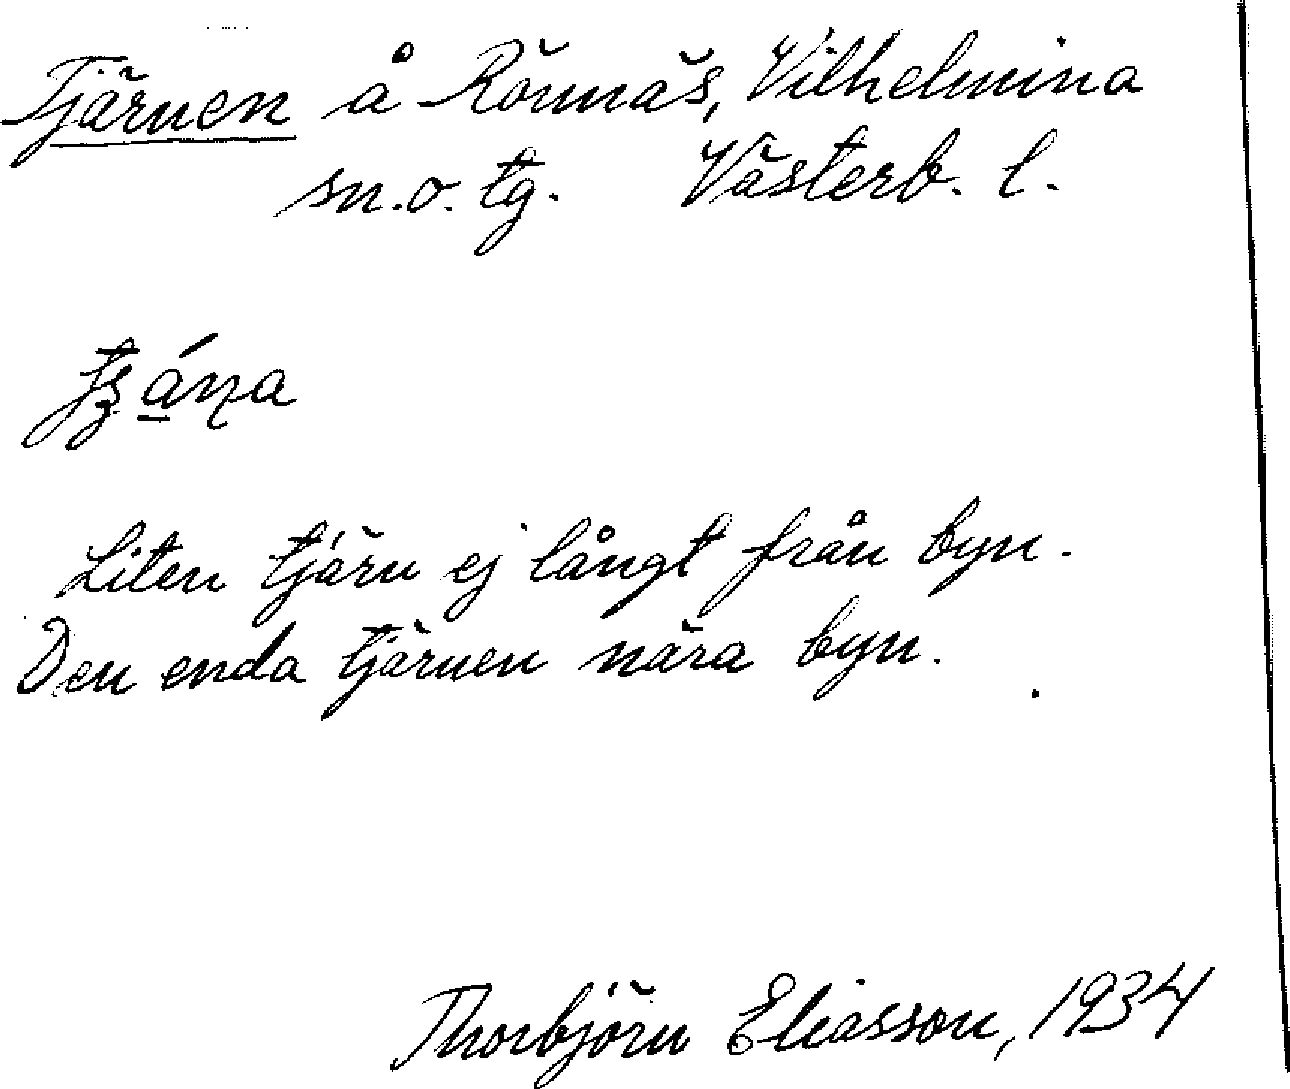 Tjärnen å Rönnäs, Vilhelmina
sn. o. tg. Västerb. l.
Liten tjärn ej långt från byn.
Den enda tjärnen nära byn.
Thorbjörn Eliasson, 1934